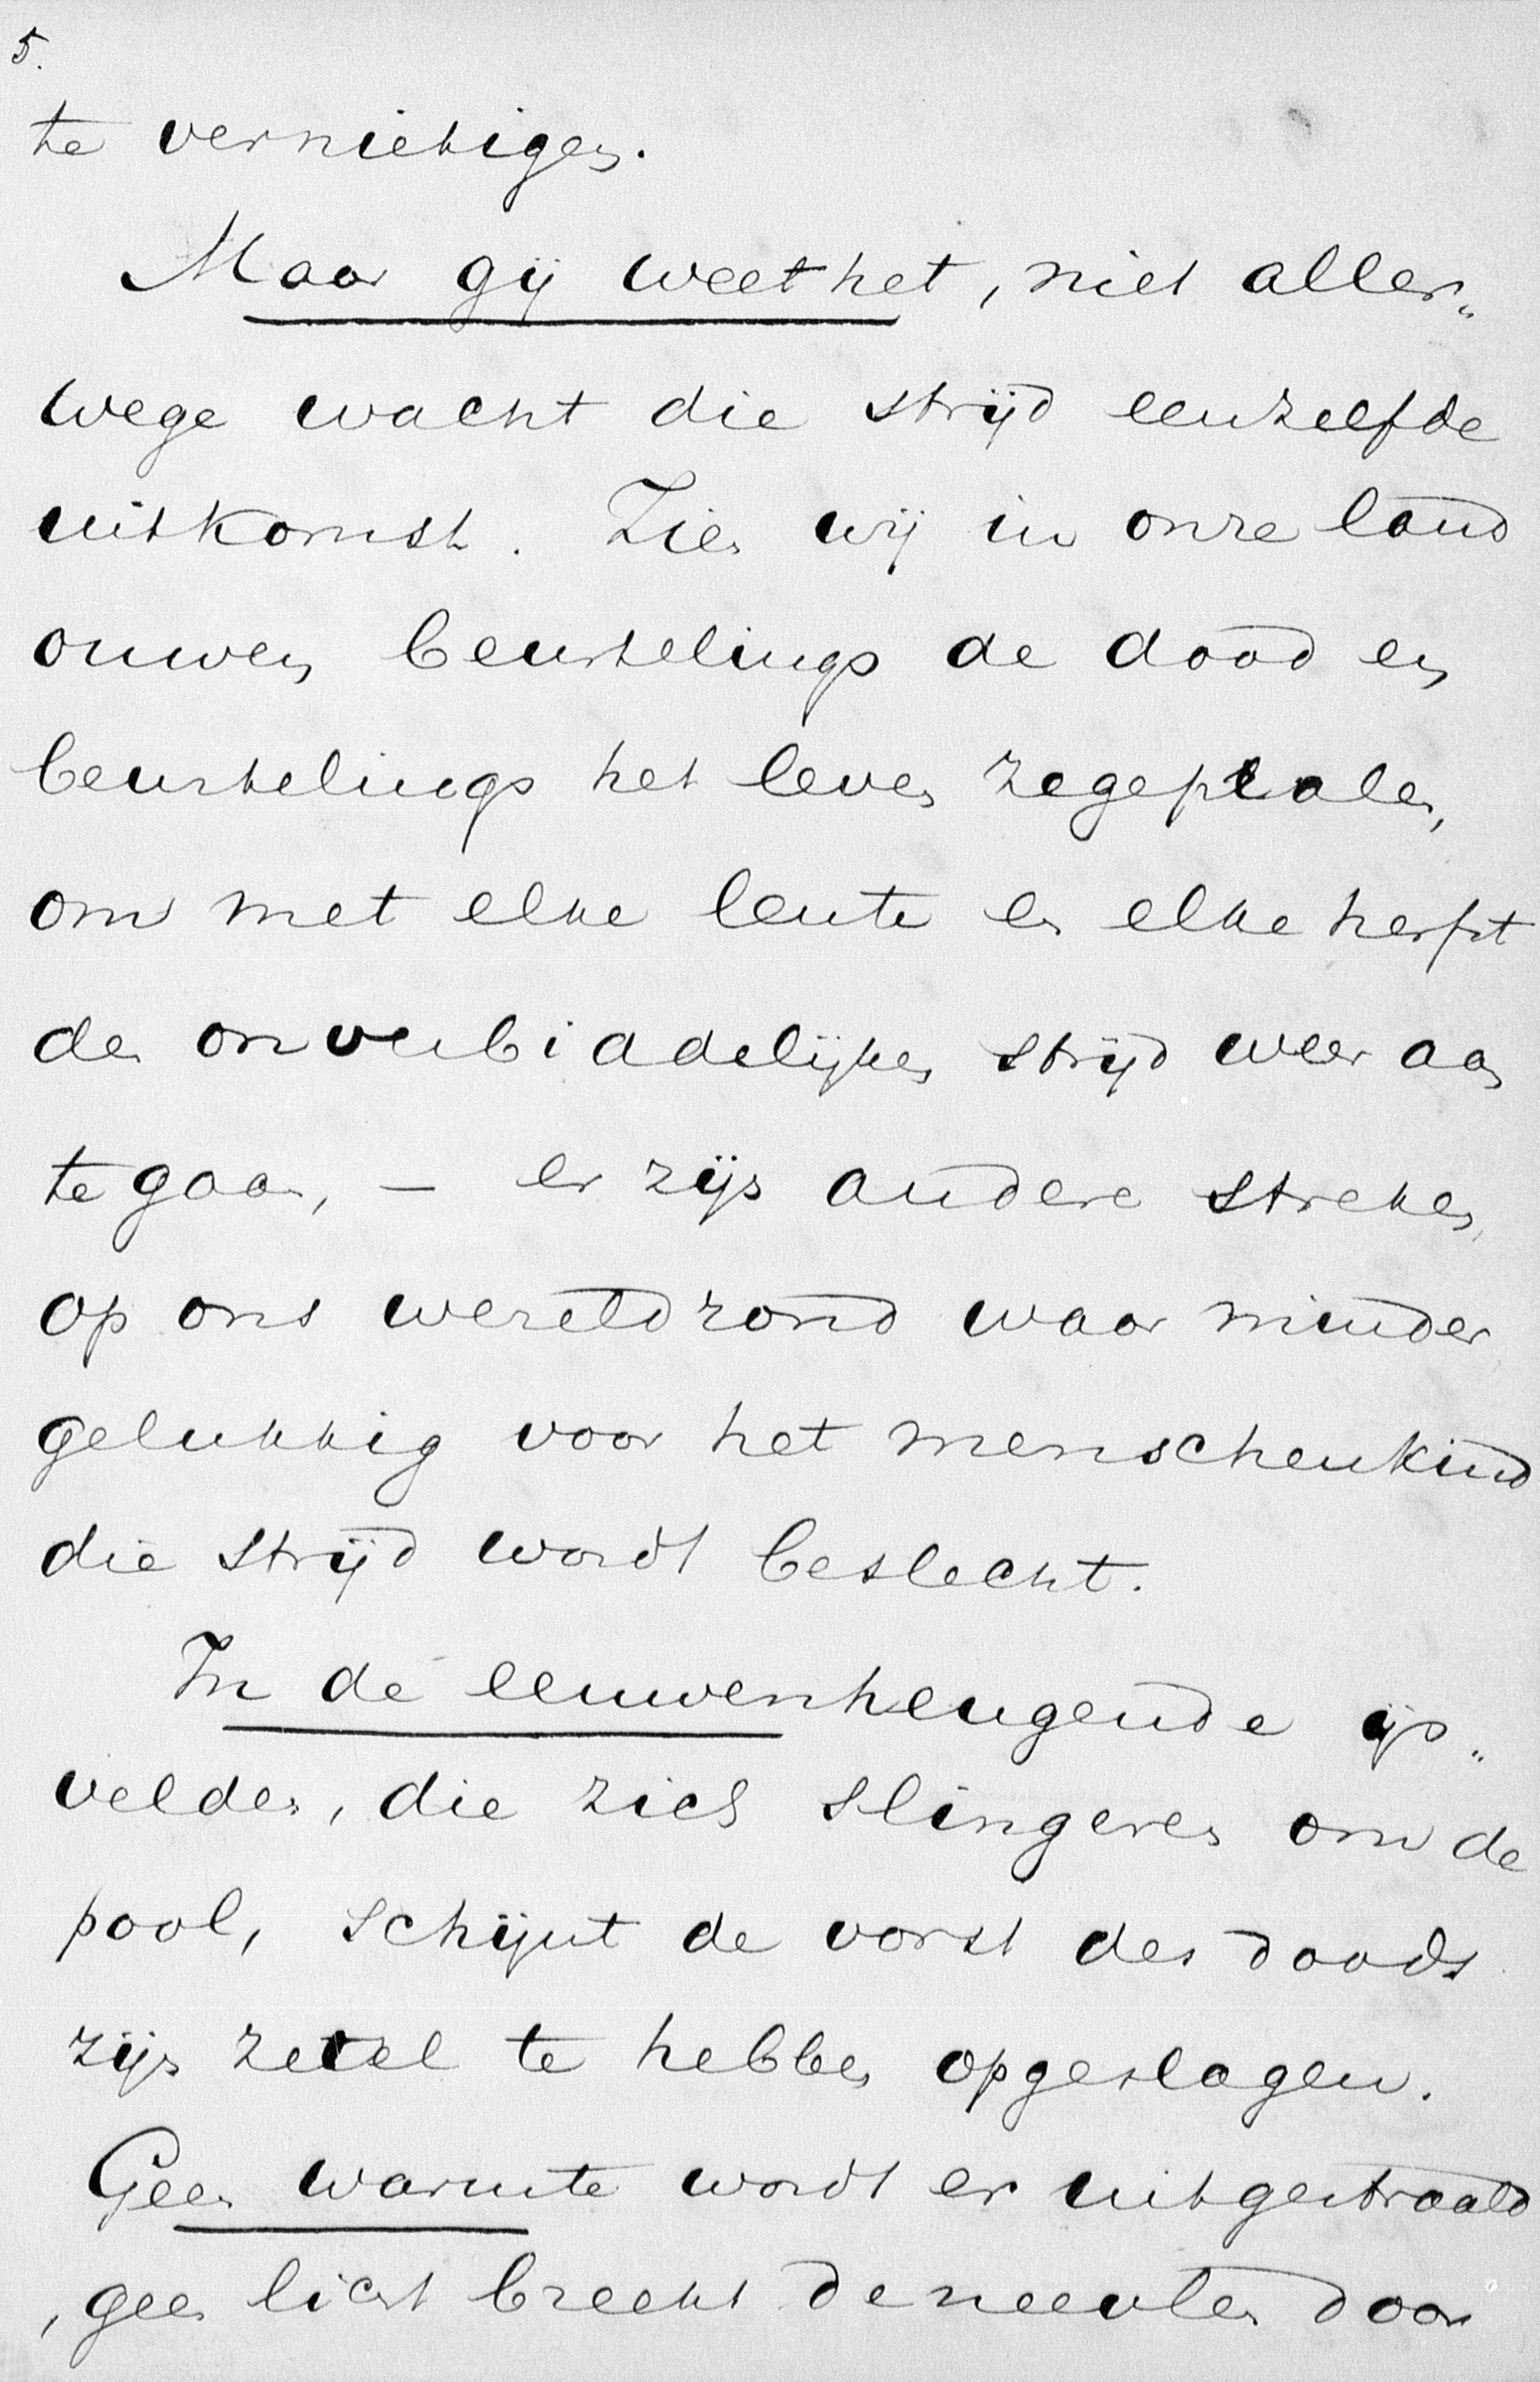 5.
te vernietigen.
Maar gij weet het, niet aller„
wege wacht die strijd eenzelfde
uitkomst. Zien wij in onze land
ouwen beurtelings de dood en
beurtelings het leven zegepralen,
om met elke lente en elke herfst
den onverbiddelijken strijd weer aan
te gaan, – er zijn andere streken,
op ons wereldrond waar minder
gelukkig voor het menschenkind
die strijd wordt beslecht.
In de eeuwenheugende ijs„
velden, die zich slingeren om de
pool, schijnt de vorst des doods
zijn zetel te hebben opgeslagen.
Geen warmte wordt er uitgestraald
, geen licht breekt de neevlen door